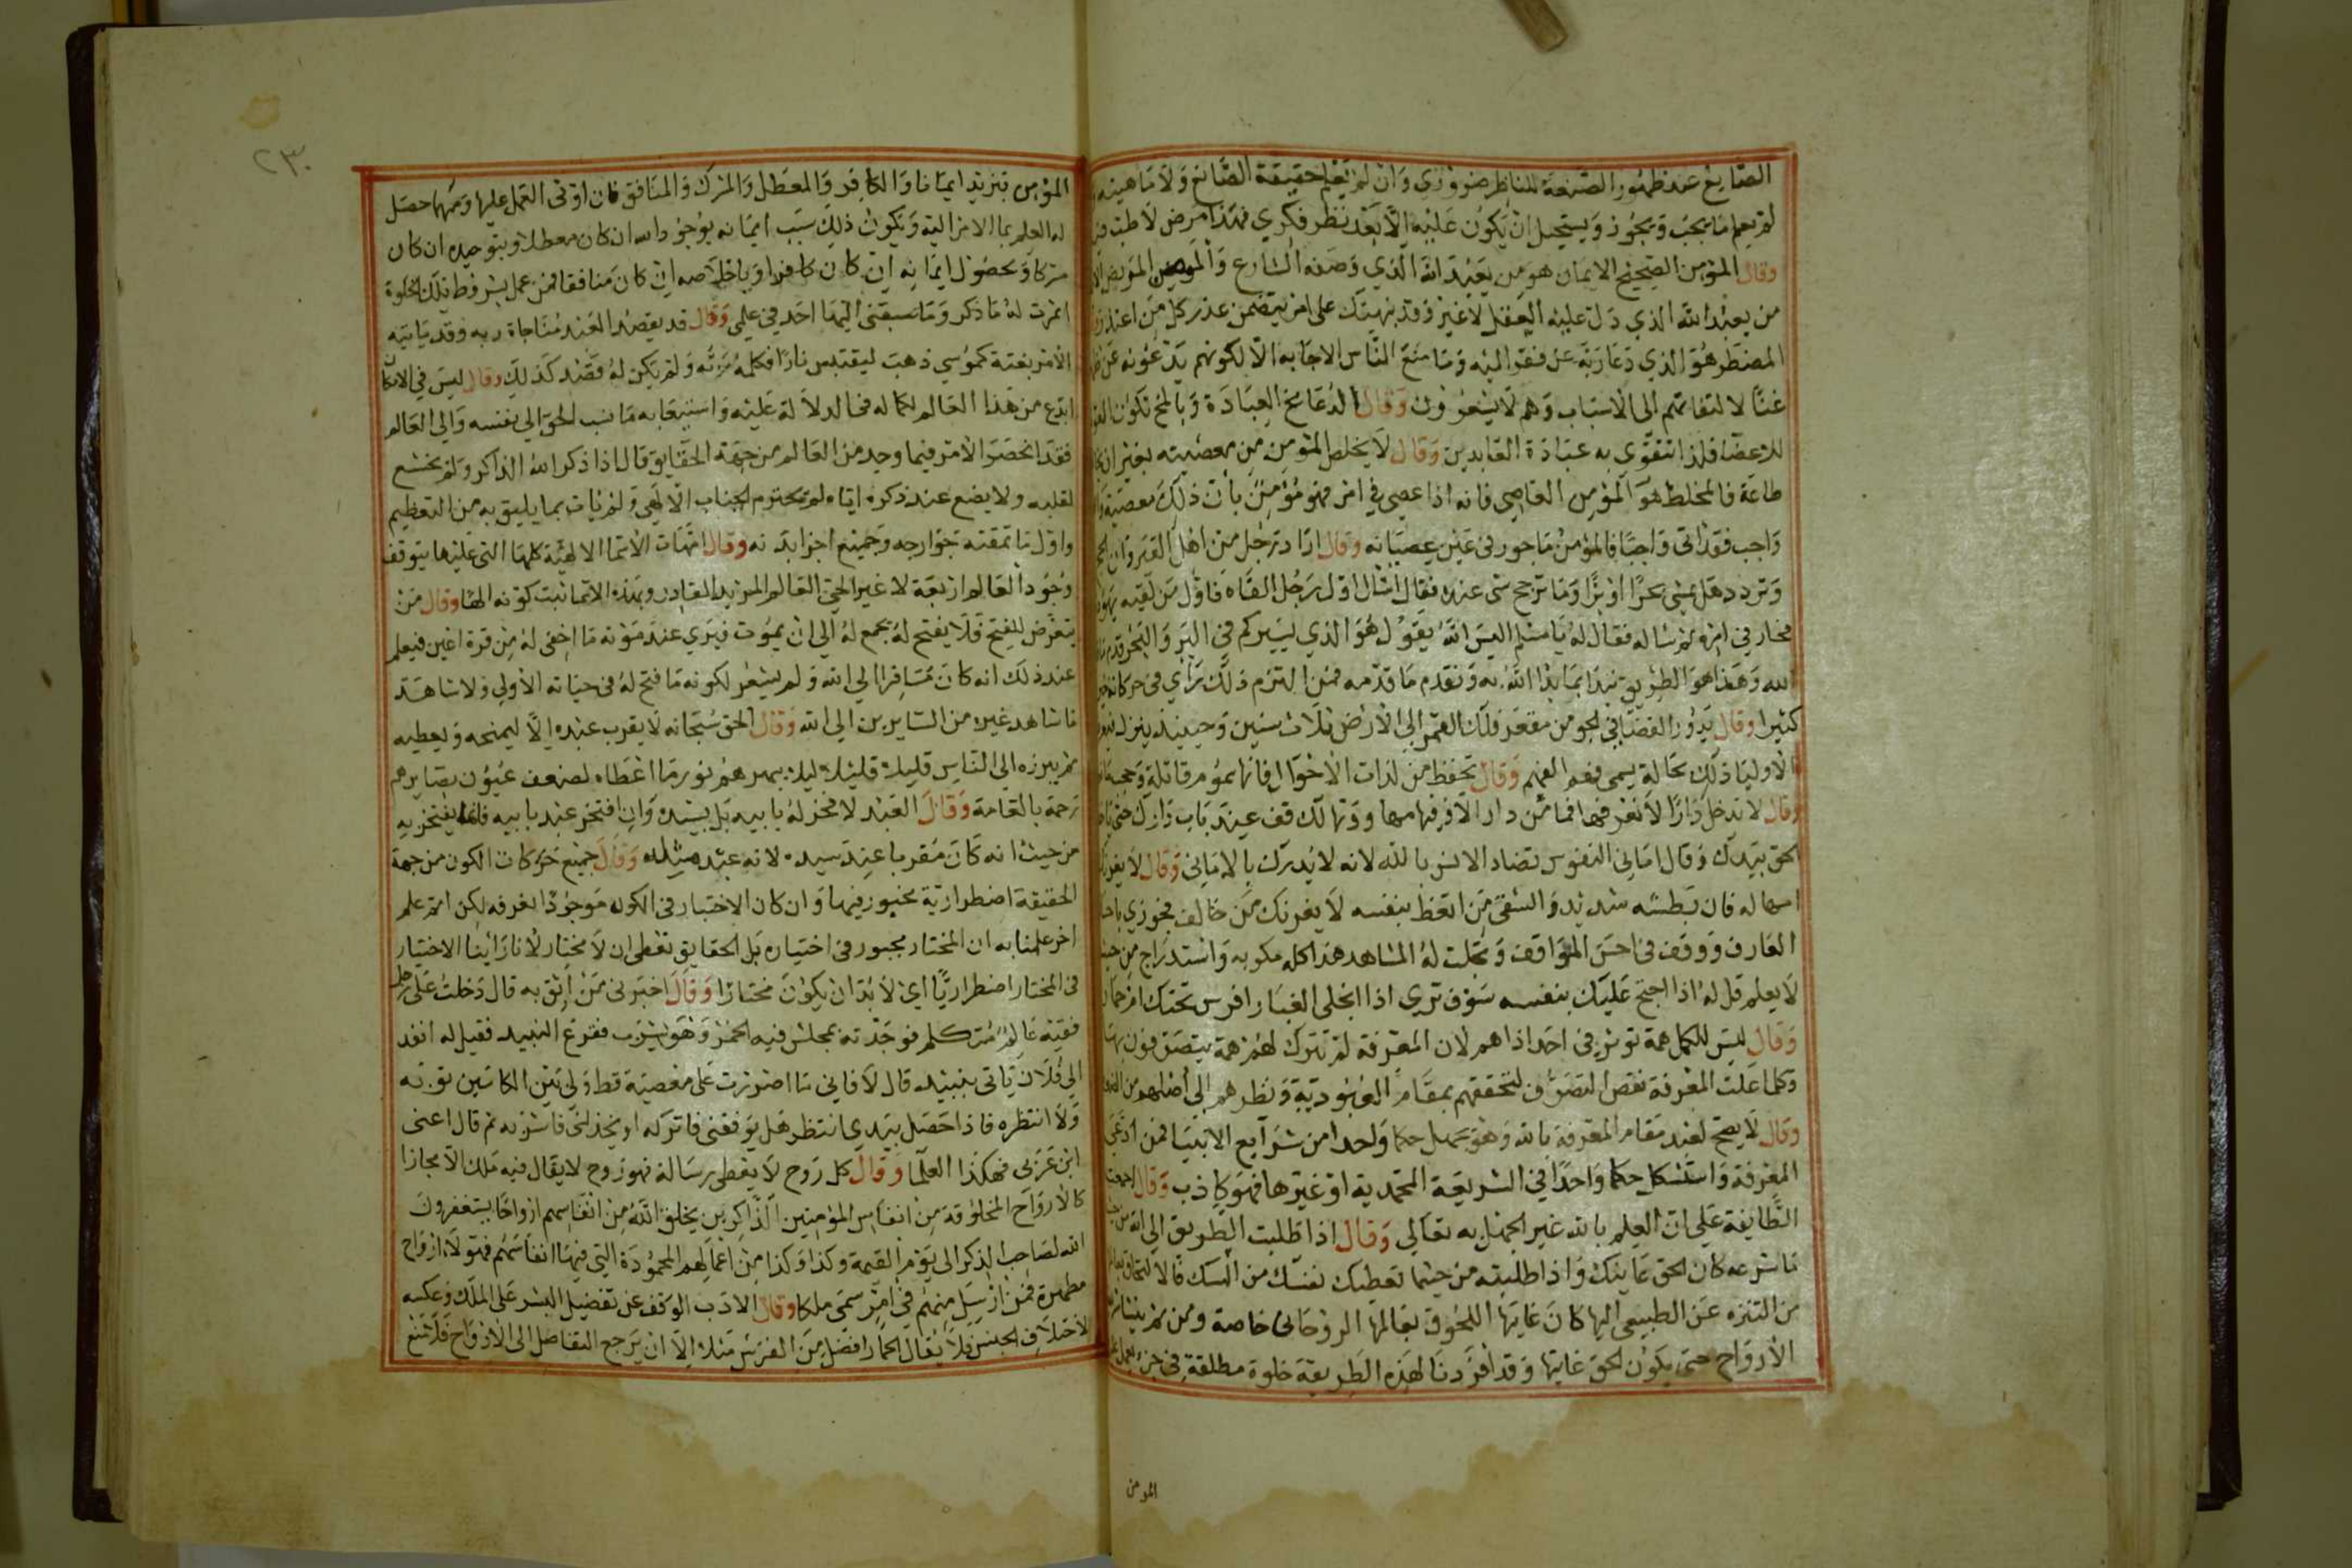 الصانع عند ظهور الصنعة للناظر ضروري وان لم يعلم حقيقة الصانع ولا ماهيته
لم يعلم ما يجب ويجوز ويستحيل ان يكون عليه الا بعد نظر فكري فهذا مرض لا طب
وقال المؤمن الصحيح الايمان هو من يعبد الله الذي وصفه الشارع والمؤمن المريض
من يعبد الله الذي دل عليه العقل لا غير وقد نبهتك على امر يتضمن عذر كل من اعتذر
المضطر هو الذي دعا ربه عن فقر اليه وما منع الناس الاجابه الا لكونهم يدعونه عن ظهر
غنا لالتفاتهم الى الاسباب وهم لا يشعرون وقال الدعا مخ العبادة وبالمخ تكون القوة
للاعضا فلذا تتقوى به عبادة العابدين وقال لا يخلص المؤمن من معصيته بغير ان
طاعة فالمخلط هو المؤمن العاصي فانه اذا عصي في امر فهو مؤمن بان ذلك معصية
واجب فقد اتى واجبا فالمؤمن ماجور في عين عصيانه وقال اراد رجل من اهل القيروان الحج
وتردد هل يمشي بحرا او برا وما ترجح شي عنده فقال اسال اول رجل القاه فاول من لقيه يهودي
فحار في امره ثم ساله فقال له يا مسلم اليس الله يقول هو الذي يسيركم في البر والبحر قدم
الله وهذا هو الطريق نبدا بما بدا الله به ونقدم ما قدمه فمن التزم ذلك راي في حركاته
كثيرا وقال يدور القضا في الجو من مقعر فلك القمر الى الارض ثلاث سنين وحينئذ ينزل
الاوليا ذلك بحالة يسمى فهم الفهم وقال تحفظ من لذات الاحوال فانها سموم قاتلة وحجب
وقال لا تدخل دارا لا تعرفها فما من دار الا وفيها مهاو ومهالك قف عند باب دارك حتى ياخذ
الحق بيدك وقال اماني النفوس تضاد الانس بالله لانه لا يدرك بالاماني وقال لا يغرنك
امهاله فان بطشه شديد والشقي من اتعظ بنفسه لا يغرنك من خالف فجوزي
العارف ووقف في احسن المواقف وتجلت له المشاهد هذا كله مكر به واستدراج من حيث
لا يعلم قل له اذا احتج عليك بنفسه سوف تري اذا انجلى الغبار افرس تحتك ام حمار
وقال ليس للكمل همة توثر في احد اذاهم لان المعرفة لم تترك لهم همة يتصرفون بها
وكلما علت المعرفة نقص التصرف لتحققهم بمقام العبودية ونظرهم الى اصلهم من
وقال لا يصح لعبد مقام المعرفة بالله وهو يجهل حكما واحدا من شرايع الانبيا فمن ادعى
المعرفة واستشكل حكما واحدا في الشريعة المحمدية او غيرها فهو كاذب وقال اجمعت
الطايفة على ان العلم بالله غير الجهل به تعالي وقال اذا طلبت الطريق الى الله من حيث
ما شرعه كان الحق غايتك واذا طلبته من حيثما تعطيك نفسك من
من التنزه عن الطبيعي اليها كان غايتها اللحوق بعالمها الروحاني خاصة ومن ثم ينشا
الارواح حتى يكون الحق غايتها وقد افردنا لهذه الطريقة خلوة مطلقة في جزء
المومن
٢٣٠
المؤمن فيزيد ايمانا والكافر والمعطل والمشرك والمنافق فان اوفى العمل عليها ومهما حصل
له العلم بما الامر اليه ويكون ذلك سبب ايمانه بوجود الله ان كان معطلا وبتوحيده ان كان
مشركا وبحصول ايمانه ان كان كافرا وباخلاصه ان كان منافقا فمن عمل بشروط تلك الخلوة
اثمرت له ما ذكر وما سبقني اليها احد في علمي وقال قد يقصد العبد مناجاة ربه وقد ياتيه
الامر بغتة كموسي ذهب ليقتبس نارا فكلمه ربه ولم يكن له قصد كذلك وقال ليس في الامكان
ابدع من هذا العالم لكماله في الدلالة عليه واستيفايه ما نسب الحق الي نفسه والي العالم
فقد انحصر الامر فيما وجد من العالم من جهة الحقايق قال اذا ذكر الله الذاكر ولم يخشع
لقلبه ولا يضع عند ذكره اياه لم يحترم الجناب الالهي ولم يات بما يليق به من التعظيم
واول ما تمقته جوارحه وجميع اجزا بدنه وقال امهات الاسما الالهية كلها التي عليها يتوقف
وجود العالم اربعة لا غير الحي العالم المريد القادر وبهذه الاسما ثبت كونه الها وقال من
يتعرض للفتح فلا يفتح له يجمع له الي ان يموت فيري عند موته ما اخفى له من قرة اعين فيعلم
عند ذلك انه كان مسافرا الي الله ولم يشعر لكونه ما فتح له في حياته الاولى ولا شاهد
ما شاهد غيره من السايرين الي الله وقال الحق سبحانه لا يقرب عبده الا ليمنحه ويعطيه
ثم يبرزه الي الناس قليلا قليلا ليلا يبهرهم نور ما اعطاه لضعف عيون بصايرهم
رحمة بالعامة وقال العبد لا فخر له بابيه بل بسيده وان افتخر عبد بابيه فانما يفتخر به
من حيث انه كان مقربا عند سيده لانه عبد مثله وقال جميع حركات الكون من جهة
الحقيقة اضطرارية مجبور فيها وان كان الاختيار في الكون موجودا نعرفه لكن ثم علم
اخر علمنا به ان المختار مجبور في اختياره بل الحقايق تعطي ان لا مختار لانا راينا الاختيار
في المختار اضطراريا اي لا بد ان يكون مختارا وقال اخبرني من اثق به قال دخلت على رجل
فقيه عالم متكلم فوجدته بمجلس فيه الخمر وهو يشرب ففرغ النبيد فقيل له انفد
الي فلان ياتي بنبيد قال لا فاني ما اصررت على معصية قط ولي بين الكاسين توبه
ولا انتظره فاذا حصل بيدي انتظر هل يوفقني فاتركه او يخذلني فاشربه ثم قال اعني
ابن عربي فهكذا العلما وقال كل روح لا يعطى رسالة فهو روح لا يقال فيه ملك الا مجازا
كالارواح المخلوقة من انفاس المؤمنين الذاكرين يخلق الله من انفاسهم ارواحا يستغفرون
الله لصاحب الذكر الى يوم القيمة وكذا وكذا من اعمالهم المحمودة التي فيها انفاسهم فهولاء ارواح
مطهرة فمن ارسل منهم في امر سمى ملكا وقال الادب الوقف عن تفضيل البشر على الملك وعكسه
لاختلاف الجنس فلا يقال الحمار افضل من الفرس مثلا الا ان يرجع التفاضل الى الارواح فلا تمنع